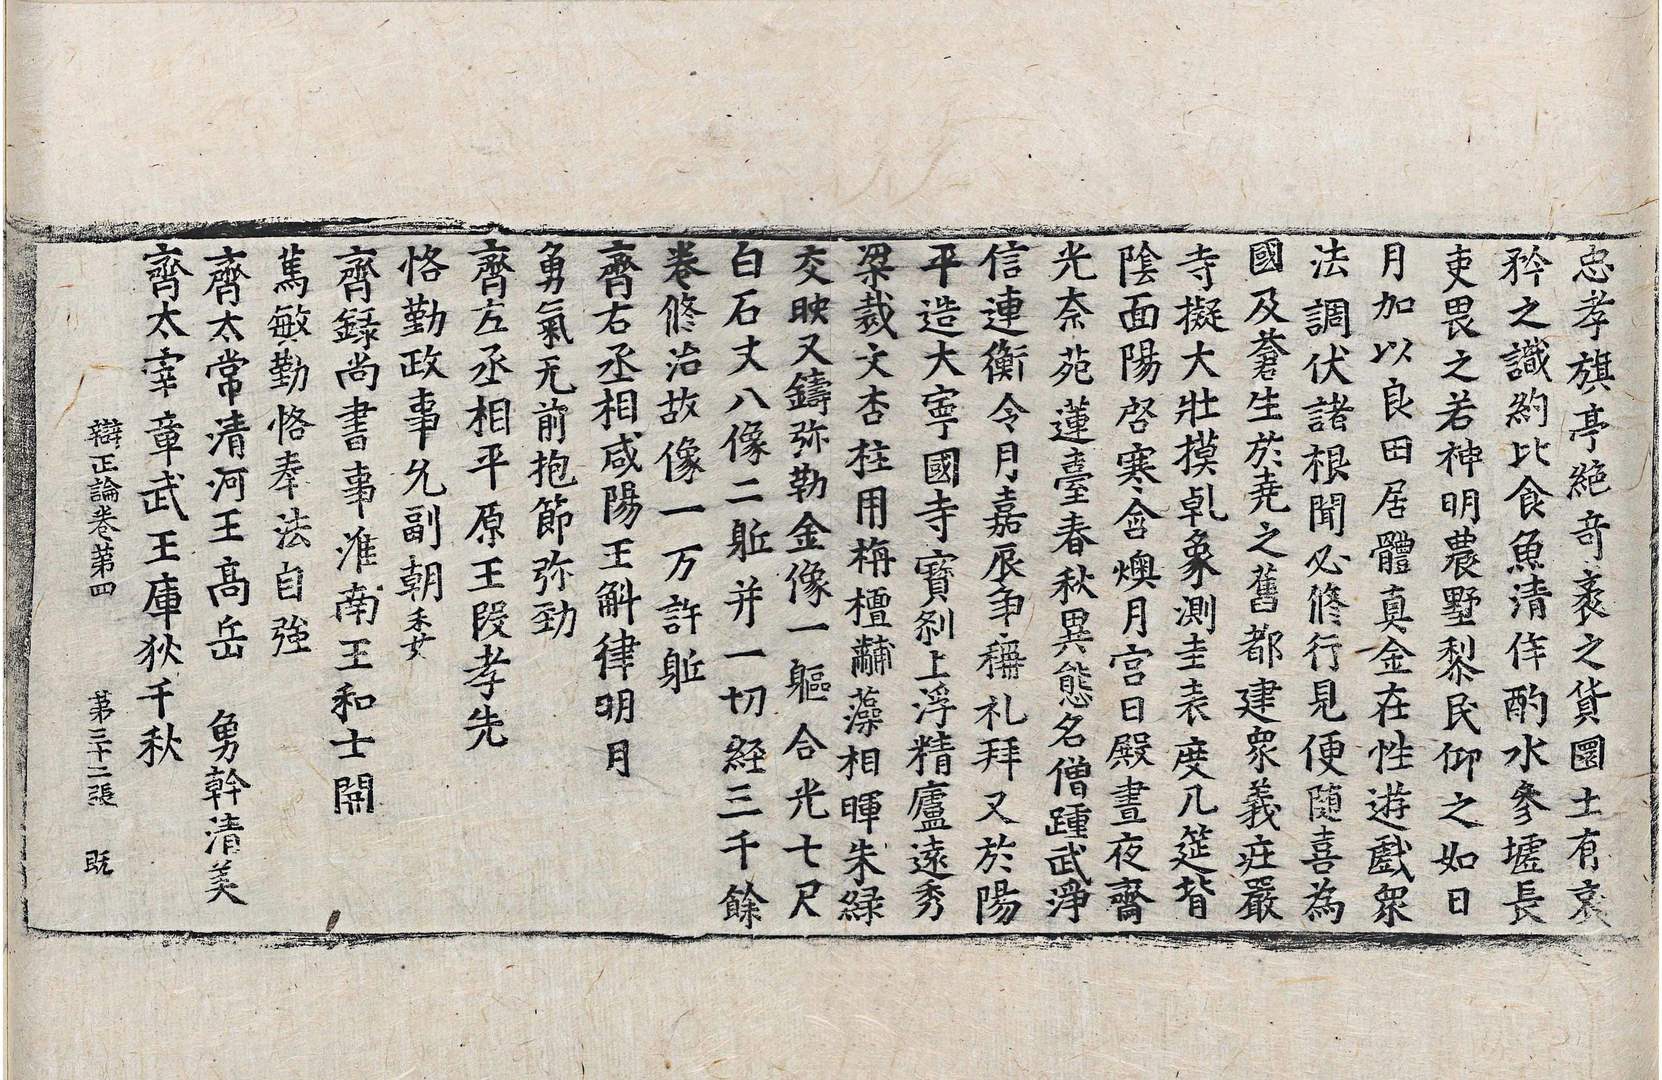 忠孝旗亭絶奇袤之貨圜土有哀
矜之識約比食魚清侔酌水參墟長
吏畏之若神明農墅黎民仰之如日
月加以良田居體真金在性遊戲衆
法調伏諸根聞必修行見便随喜為
國及蒼生於尭之舊都建衆義庄嚴
寺擬大壯摸乹象測圭表度几筵背
陰面陽啓寒含燠月宫日殿晝夜齊
光奈苑蓮臺春秋異態名僧踵武淨
信連衡令月嘉辰争稱礼拜又於陽
平造大寧國寺寶刹上浮精廬遠秀
梁裁文杏柱用栴檀黼藻相暉朱緑
交映又鑄弥勒金像一軀合光七尺
白石丈八像二軀并一切経三千餘
卷修治故像一万許軀
齊右丞相咸陽王斛律明月
勇氣无前抱節弥勁
齊左丞相平原王段孝先
恪勤政事允副朝委
齊録尚書事淮南王和士開
篤敏勤恪奉法自強
齊太常清河王高岳 勇幹清美
齊太宰章武王庫狄千秋
辯正論卷第四 第三十二張 既